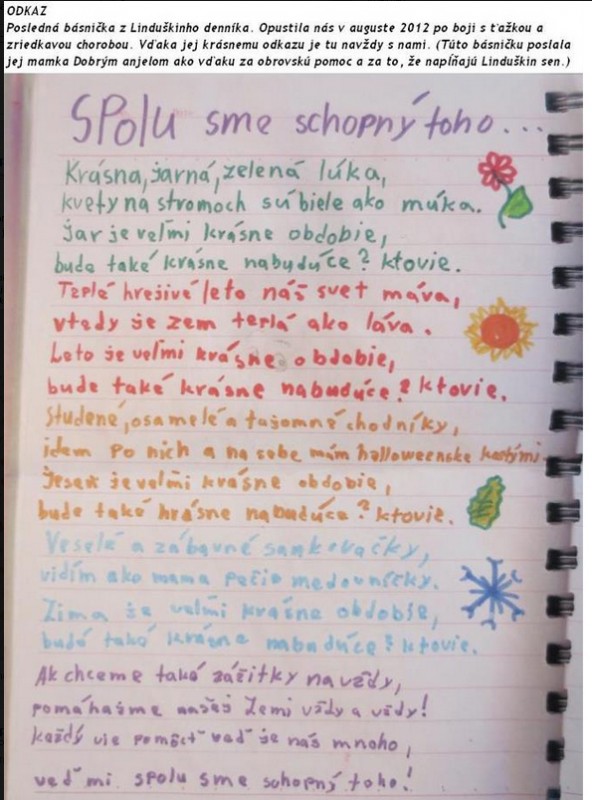 ODKAZ
Posledná básnička z Linduškinho denníka. Opustila nás v auguste 2012 po boji s ťažkou a
zriedkavou chorobou. Vďaka jej krásnemu odkazu je tu navždy s nami. (Túto básničku poslala
jej mamka Dobrým anjelom ako vďaku za obrovskú pomoc a za to, že napĺňajú Linduškin sen.)
SPolu sme schopný toho...
Krásna, jarná, zelená lúka,
kvety na stromoch sú biele ako múka.
Jar je veľmi krásne obdobie,
bude také krásne nabudúce? ktovie.
Teplé hrejivé leto náš svet máva,
vtedy je zem teplá ako láva.
Leto je veľmi krásne obdobie,
bude také krásne nabudúce? ktovie.
Studené, osamelé a tajomné chodníky,
idem po nich a na sebe mám halloweenske
Jeseň je veľmi krásne obdobie,
bude také krásne nabudúce? ktovie.
Veselé a zábavné sankovačky,
vidím ako mama pečie medovníčky.
Zima je veľmi krásne obdobie,
bude také krásne nabudúce? ktovie.
Ak chceme také zážitky navždy,
pomáhajme našej Zemi vždy a vždy!
každý vie pomôcť veď je nás mnoho,
veď mi spolu sme schopný toho!